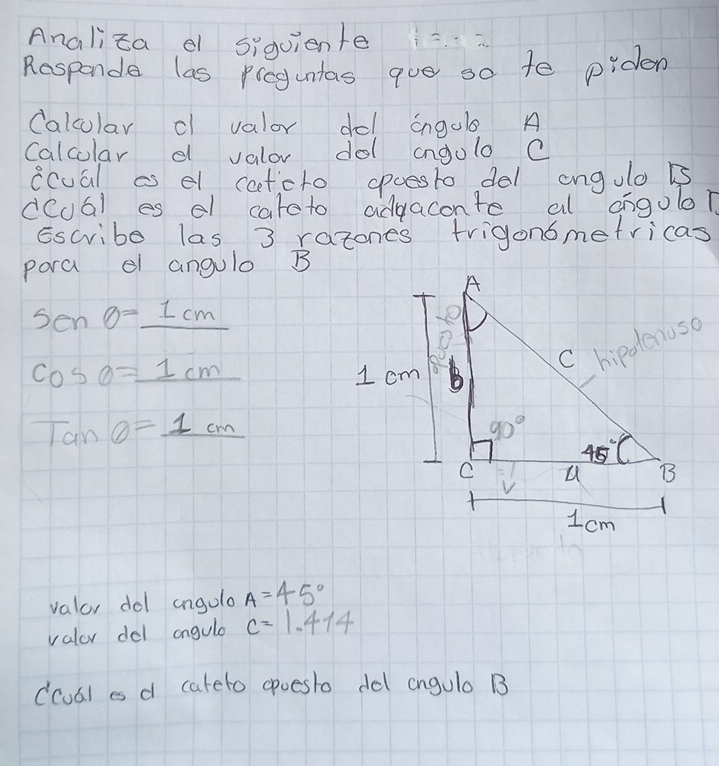 Analiza el siguiente
Responde las preguntas que so te piden
Calcular el valor del ángulo A
Calcular el valor del angulo C
¿cuál es el cateto opuesto del angulo B
¿Cuál es el cateto adyaconte al ángulo
Escribe las 3 razones trigonómetricas
para el angulo B
Sen θ= 1 cm
Cos θ= 1 cm
Tan θ= 1 cm
A
1 cm
b
C hipotenuso
90°
45°
C
a
B
1cm
valor del angulo A=45°
valor del angulo C= 1.414
¿cuál es el cateto opuesto del angulo B